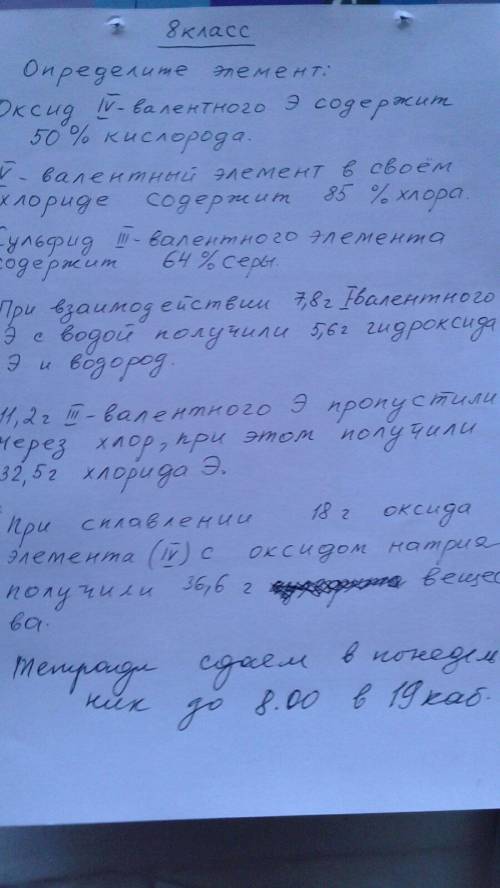 8 класс
Определите элемент:
Оксид IV-валентного Э содержит
50 % кислорода.
V - валентный элемент в своём
хлориде содержит 85 % хлора.
Сульфид III-валентного элемента
содержит 64 % серы.
При взаимодействии 7,8 г I валентного
Э с водой получили 5,6 г гидроксида
Э и водород.
11,2 г III-валентного Э пропустили
через хлор, при этом получили
32,5 г хлорида Э.
При сплавлении 18 г оксида
элемента (IV) с оксидом натрия
получили 36,6 г вещес
ва.
Тетради сдаем в понедель
ник до 8.00 в 19 каб.